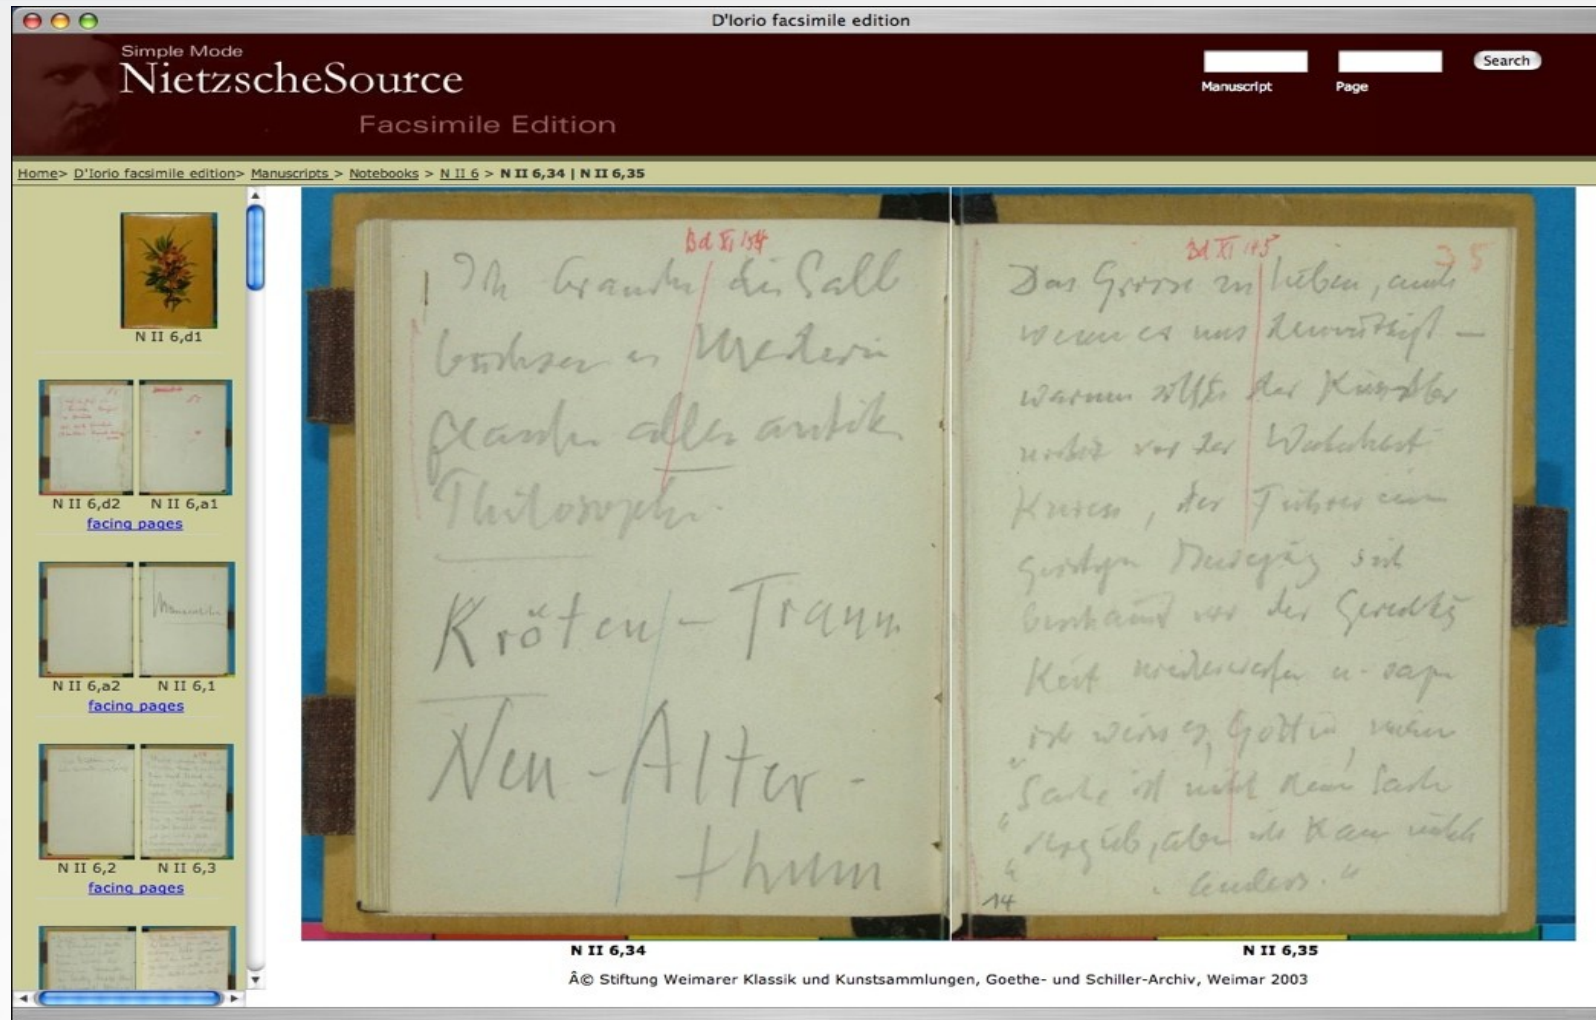 D'Iorio facsimile edition
Simple Mode
NietzscheSource
Facsimile Edition
Search
Manuscript Page
Home> D'Iorio facsimile edition> Manuscripts > Notebooks > N II 6 > N II 6,34 | N II 6,35
N II 6,d1
N II 6,d2 N II 6,a1
facing pages
N II 6,a2 N II 6,1
facing pages
N II 6,2 N II 6,3
facing pages
Bd XI
Ich brauche die Salb
büchsen u Medicin
flaschen aller antik
Philosoph.
Kröten-Traum
Neu-Alter-
thum
Bd XI
35
Das Grosse zu lieben, auch
wenn es uns demüthigt —
warum sollte der Künstler
nicht vor der Wahrheit
knieen, der Führer einer
geistigen Bewegung sich
beschämt vor der Gerechtig
keit niederwerfen u. sagen
"ich weiss es, Göttin, meine
"Sache ist nicht deine Sache
" vergieb, aber ich kann nicht
anders."
14
N II 6,34 N II 6,35
Â© Stiftung Weimarer Klassik und Kunstsammlungen, Goethe- und Schiller-Archiv, Weimar 2003